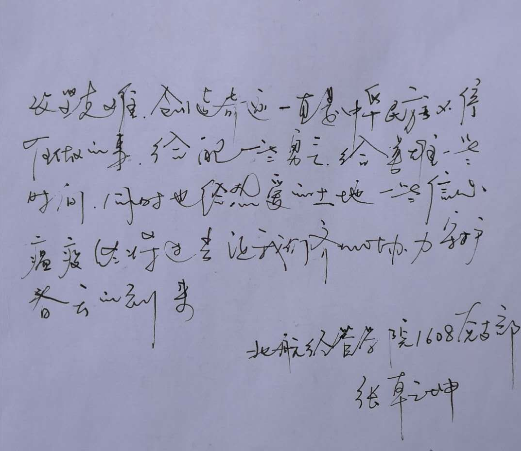 攻坚克难,创造奇迹一直是中华民族不停
在做的事,给配一些勇气,给善难一些
时间,同时也给热爱的土地一些信心
瘟疫终将过去 让我们齐心协力 守护
春天的到来
北航经管学院1608党支部
张草坤